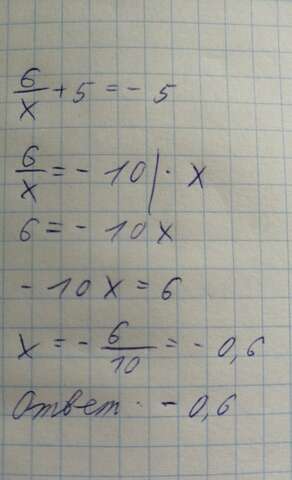 6/x + 5 = - 5
6/x = - 10 | · x
6 = - 10 x
- 10 x = 6
x = - 6/10 = - 0,6
Ответ: - 0,6